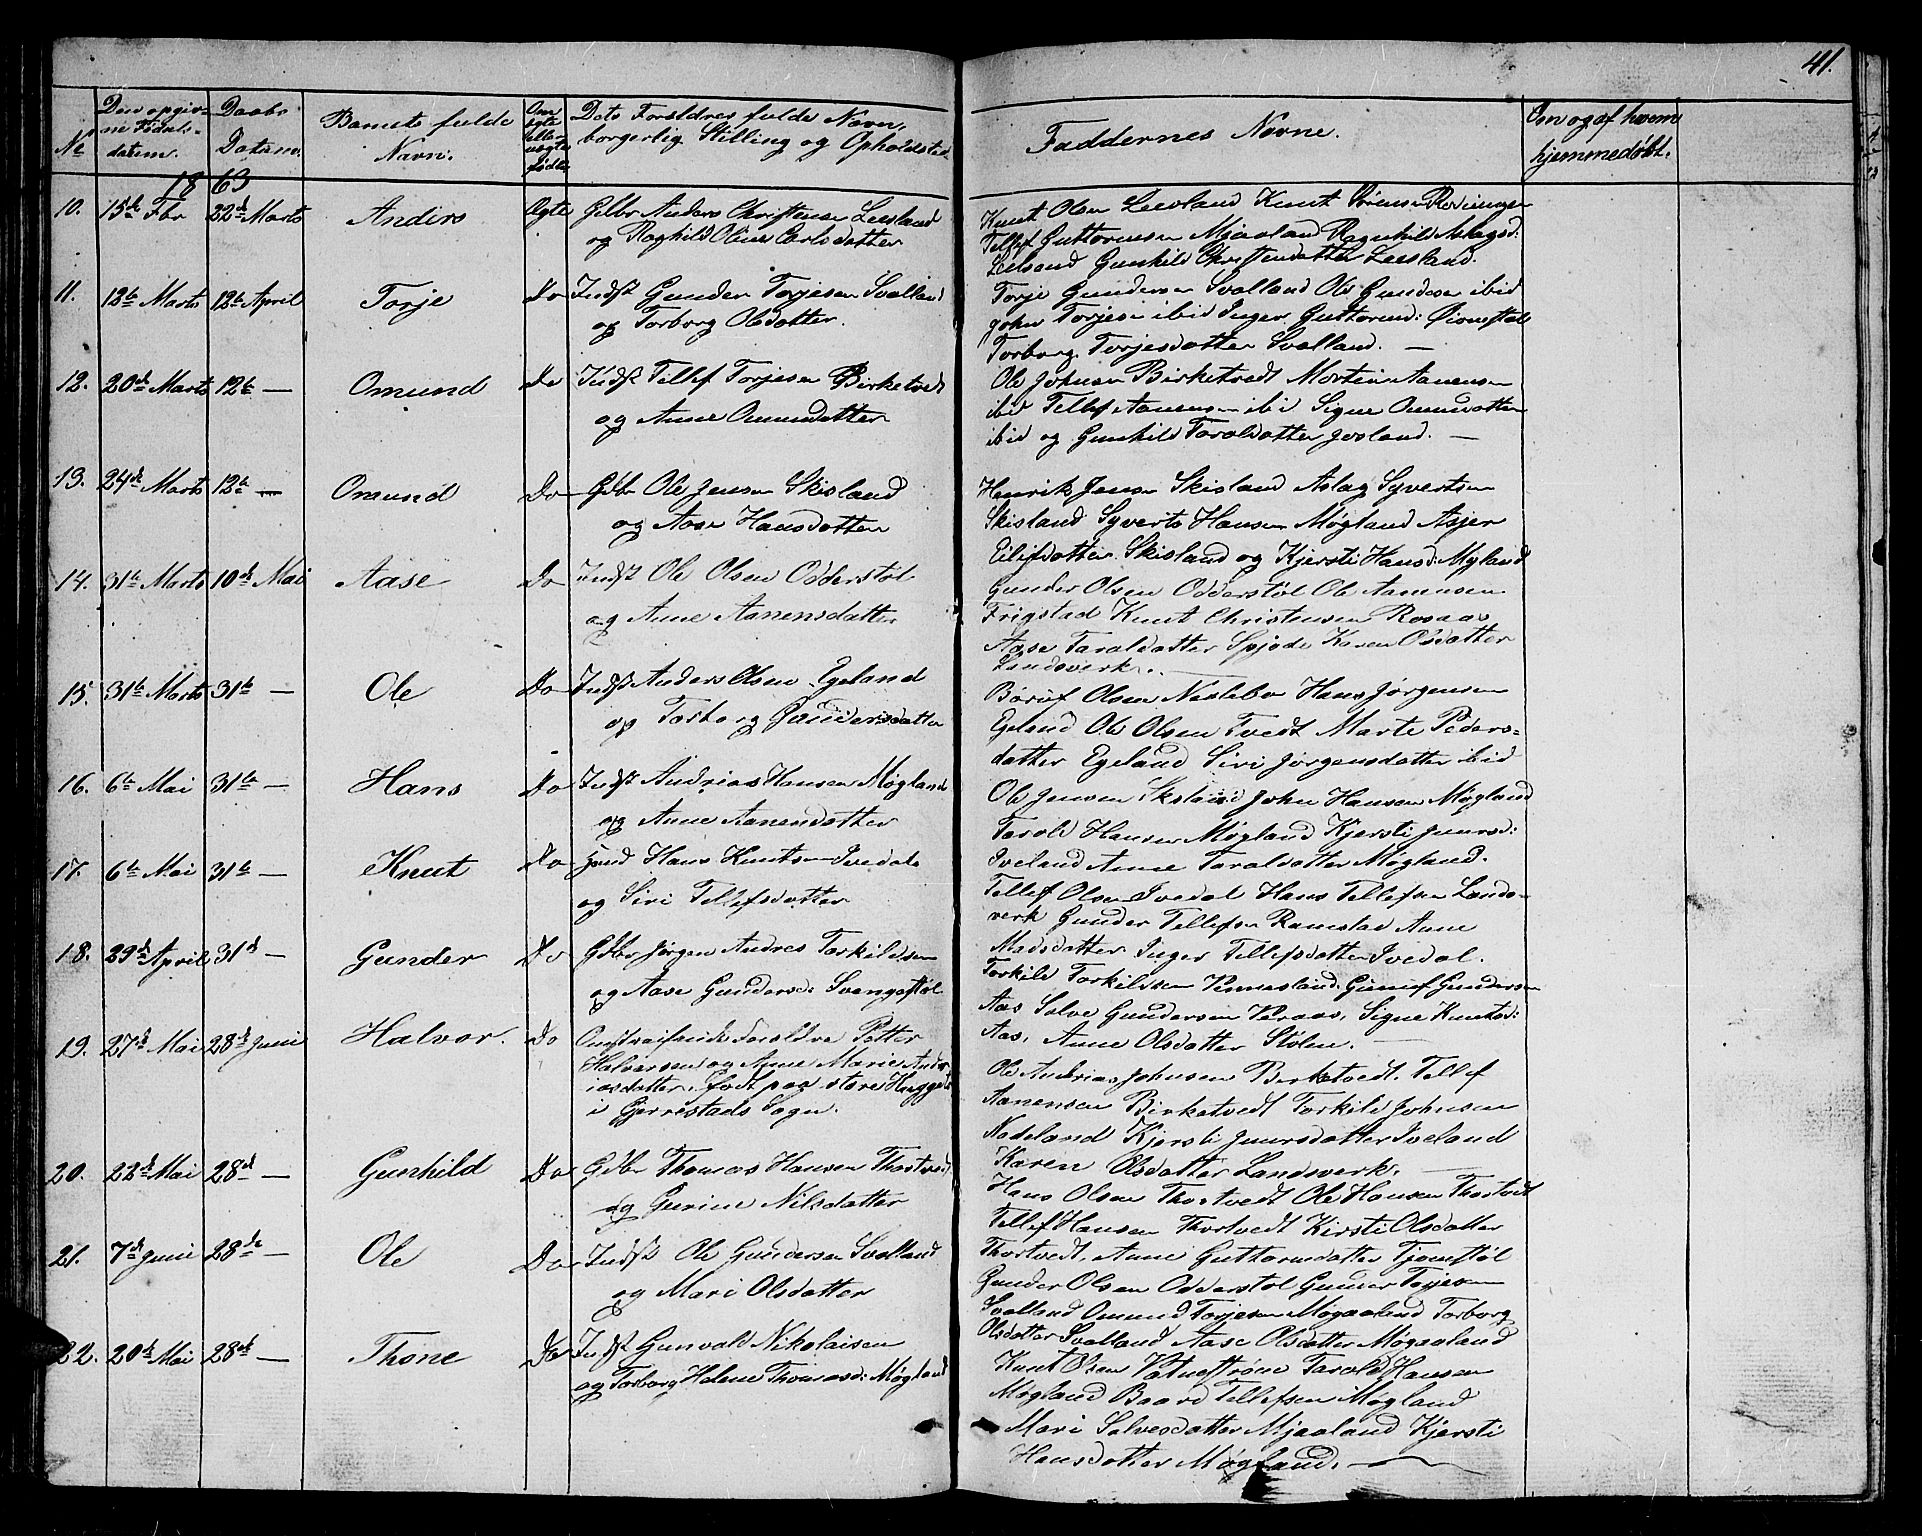 41.
No
Den opgiv-
ne Fødsels-
datum.
Daabs
Datum.
Barnets fulde
Navn.
Om
ægte
eller
uægte
fødte
Dets Forældres fulde Navn,
borgerlig Stilling og Opholdsted
Faddernes Navne.
Om og af hvem
hjemmedøbt.
1863
10. 15de Fbr 22de Marts Anders Ægte Gdbr Anders Christensen Leesland
og Raghild Oline Carlsdatter
Knut Olsen Leesland Knut Sørensen
Tellef Guttormsen Mjaaland Ragnhild Aslagsd:
Leesland Gunhild Christensdatter Leesland.
11. 12te Marts 12te April Torje Do Indst Gunder Torjesen Svalland
og Torborg Olsdatter.
Torje Gundersen Svalland Ole Gundersen ibid
John Torjesen ibid Inger Guttormsd:
Torborg Torjesdatter Svalland. —
12. 20de Marts 12te — Omund Do Indst Tellef Torjesen Birketvedt
og Anne Omundsdatter
Ole Johnsen Birketvedt Morten Aanensen
ibid Tellef Aanensen ibid Signe
ibid og Gunhild Taraldsdatter —
13. 24de Marts 12te — Omund Do Gdbr Ole Jensen Skisland
og Aase Hansdatter
Henrik Jensen Skisland Aslag Syvertsen
Skisland Syvert Hansen Møgland Asjer
Eilifsdatter Skisland og Kjersti Hansd: Møgland
14. 31te Marts 10de Mai Aase Do Indst Ole Olsen Odderstøl
og Anne Aanensdatter
Gunder Olsen Odderstøl Ole Aanensen
Frigstad Knut Christensen Rosaas
Aase Taraldsdatter Karen Olsdatter
Landsverk. —
15. 31te Marts 31te — Ole Do Indst Anders Olsen Egeland
og Torborg Gundersdatter
Olsen Hans Jørgensen
Egeland Ole Olsen Tvedt Marte Peders-
datter Egeland Siri Jørgensdatter ibid
16. 6te Mai 31te — Hans Do Indst Andreas Hansen Møgland
og Anne Aanensdatter
Ole Jensen Skisland John Hansen Møgland
Tarald Hansen Møgland Kjersti
Iveland Anne Taraldsdatter Møgland.
17. 6te Mai 31te — Knut Do Hans Knutsen Ivedal
og Siri Tellefsdatter
Tellef Olsen Ivedal Hans Tellefsen Lands-
verk Gunder Tellefsen Ramstad Anne
Madsdatter Inger Tellefsdatter Ivedal.
18. 29de April 31te — Gunder Do Gdbr Jørgen Andres Torkildsen
og Aase Gundersd:
Torkild Torkildsen Vennesland Gundersen
Aas Salve Gundersen Signe Knutsd:
Aas, Anne Olsdatter Støten. —
19. 27de Mai 28de Juni Halvor. Do Omstreifende Forældre Petter
Halvorsen og Anne Marie Andre-
iasdatter, født paa store
i Gjerrestads Sogn.
Ole Andreas Johnsen Birketvedt. Tellef
Aanensen Birketvedt Torkild Johnsen
Nateland Kjersti Iveland
Karen Olsdatter Landsverk. —
20. 22de Mai 28de — Gunhild Do Gdbr Thomas Hansen Thortvedt
og Gurine Nilsdatter
Hans Olsen Thortvedt Ole Hansen Thortvedt
Tellef Hansen Thortvedt Kirsti Olsdatter
Thortvedt, Anne Guttormsdatter
21. 7de Juni 28de — Ole Do Indst Ole Gundersen Svalland
og Mari Olsdatter
Gunder Olsen Odderstøl Gunder Torjesen
Svalland Omund Torjesen Møgaaland Torborg
Olsdatter Svalland Aase Olsdatter Møgaaland
22. 20de Mai 28de — Thone Do Indst Gunvald Nikolaisen
og Torborg Helene Thomasd: Møgland
Knut Olsen Vatnestrøm Tarald Hansen
Møgland Baard Tellefsen Møgland
Mari Salvesdatter Mjaaland Kjersti
Hansdatter Møgland. —